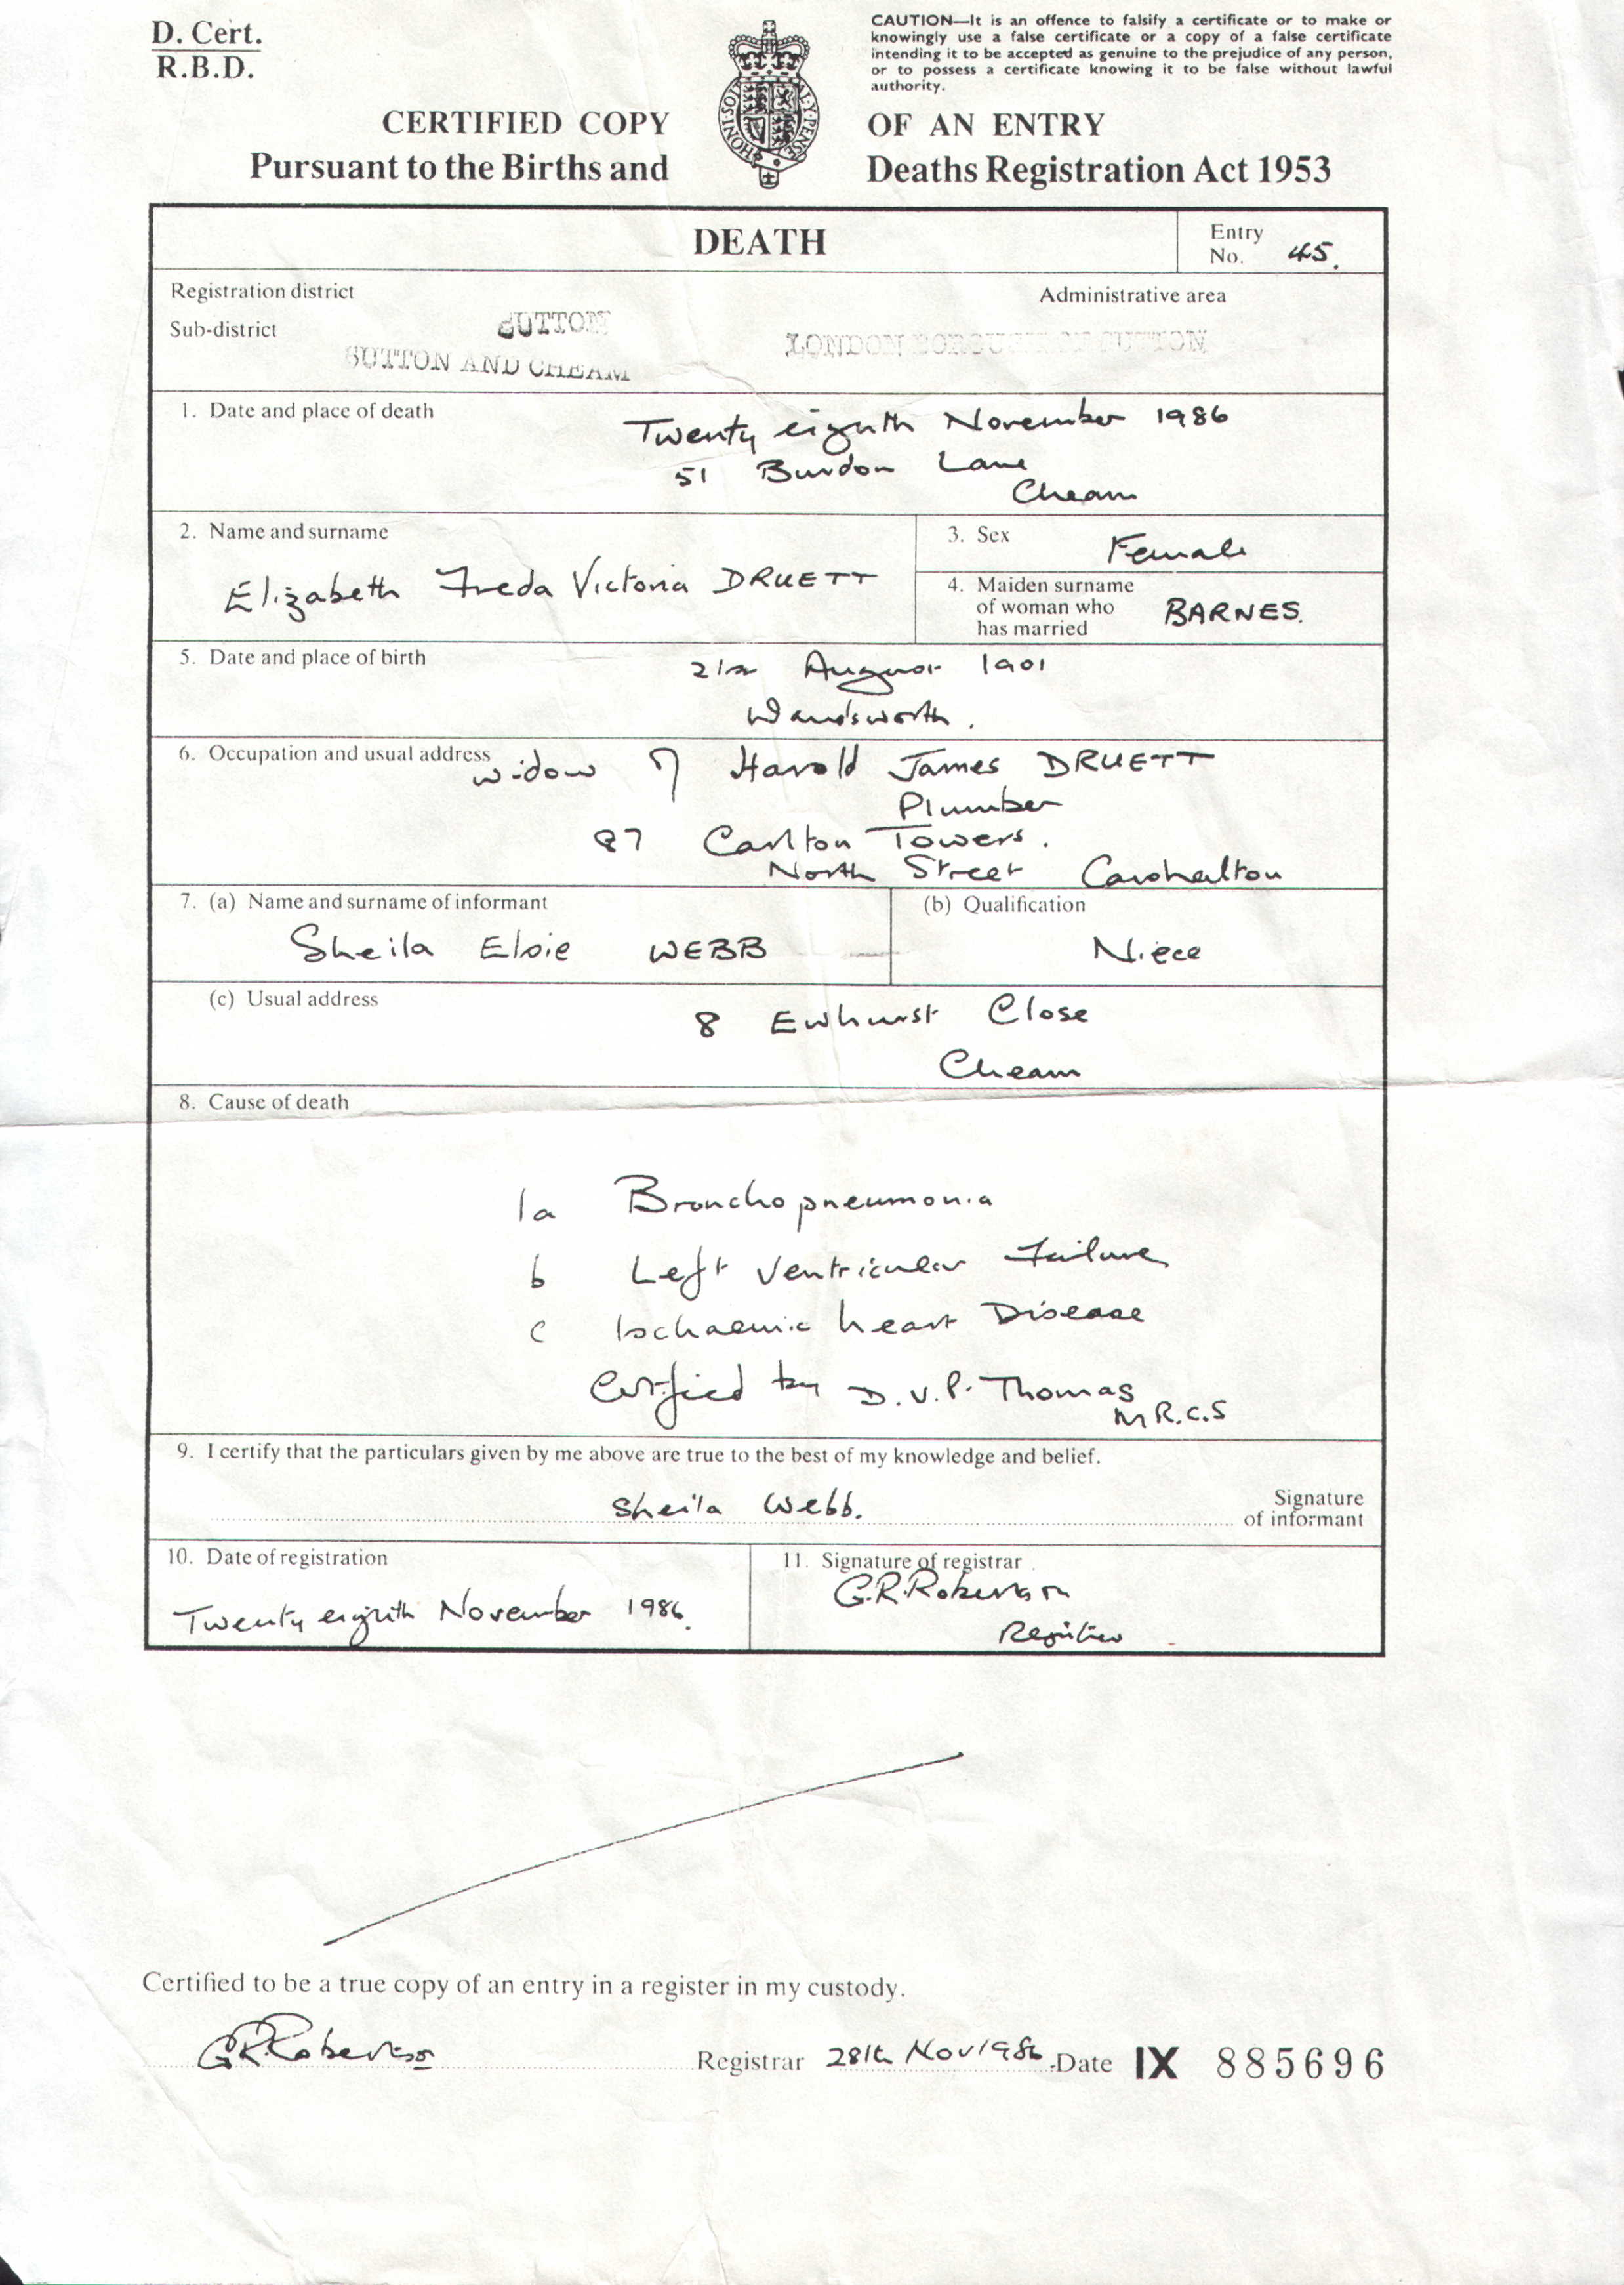 D. Cert.
R.B.D.
CAUTION—It is an offence to falsify a certificate or to make or
knowingly use a false certificate or a copy of a false certificate
intending it to be accepted as genuine to the prejudice of any person,
or to possess a certificate knowing it to be false without lawful
authority.
CERTIFIED COPY OF AN ENTRY
Pursuant to the Births and Deaths Registration Act 1953
HONI·SOIT Y·PENSE
DEATH
Entry
No. 45.
Registration district
SUTTON
Administrative area
LONDON BOROUGH OF SUTTON
Sub-district
SUTTON AND CHEAM
1. Date and place of death
Twenty eighth November 1986
51 Burdon Lane
Cheam
2. Name and surname
Elizabeth Freda Victoria DRUETT
3. Sex
Female
4. Maiden surname
of woman who
has married
BARNES.
5. Date and place of birth
21st August 1901
Wandsworth.
6. Occupation and usual address
Widow of Harold James DRUETT
Plumber
87 Carlton Towers.
North Street Carshalton
7. (a) Name and surname of informant
Sheila Elsie WEBB
(b) Qualification
Niece
(c) Usual address
8 Ewhurst Close
Cheam
8. Cause of death
1a Bronchopneumonia
b Left Ventricular Failure
c Ischaemic heart Disease
Certified by D.V.P. Thomas
M R.C.S
9. I certify that the particulars given by me above are true to the best of my knowledge and belief.
Sheila Webb.
Signature
of informant
10. Date of registration
Twenty eighth November 1986.
11. Signature of registrar
G.R.Robertson
Registrar
Certified to be a true copy of an entry in a register in my custody.
G R Robertson Registrar 28th Nov 1986 Date IX 885696